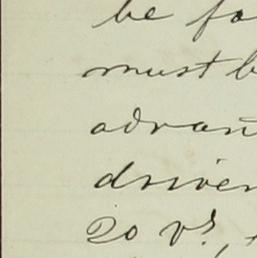 be fo
must b
advan
driven
20 v?,